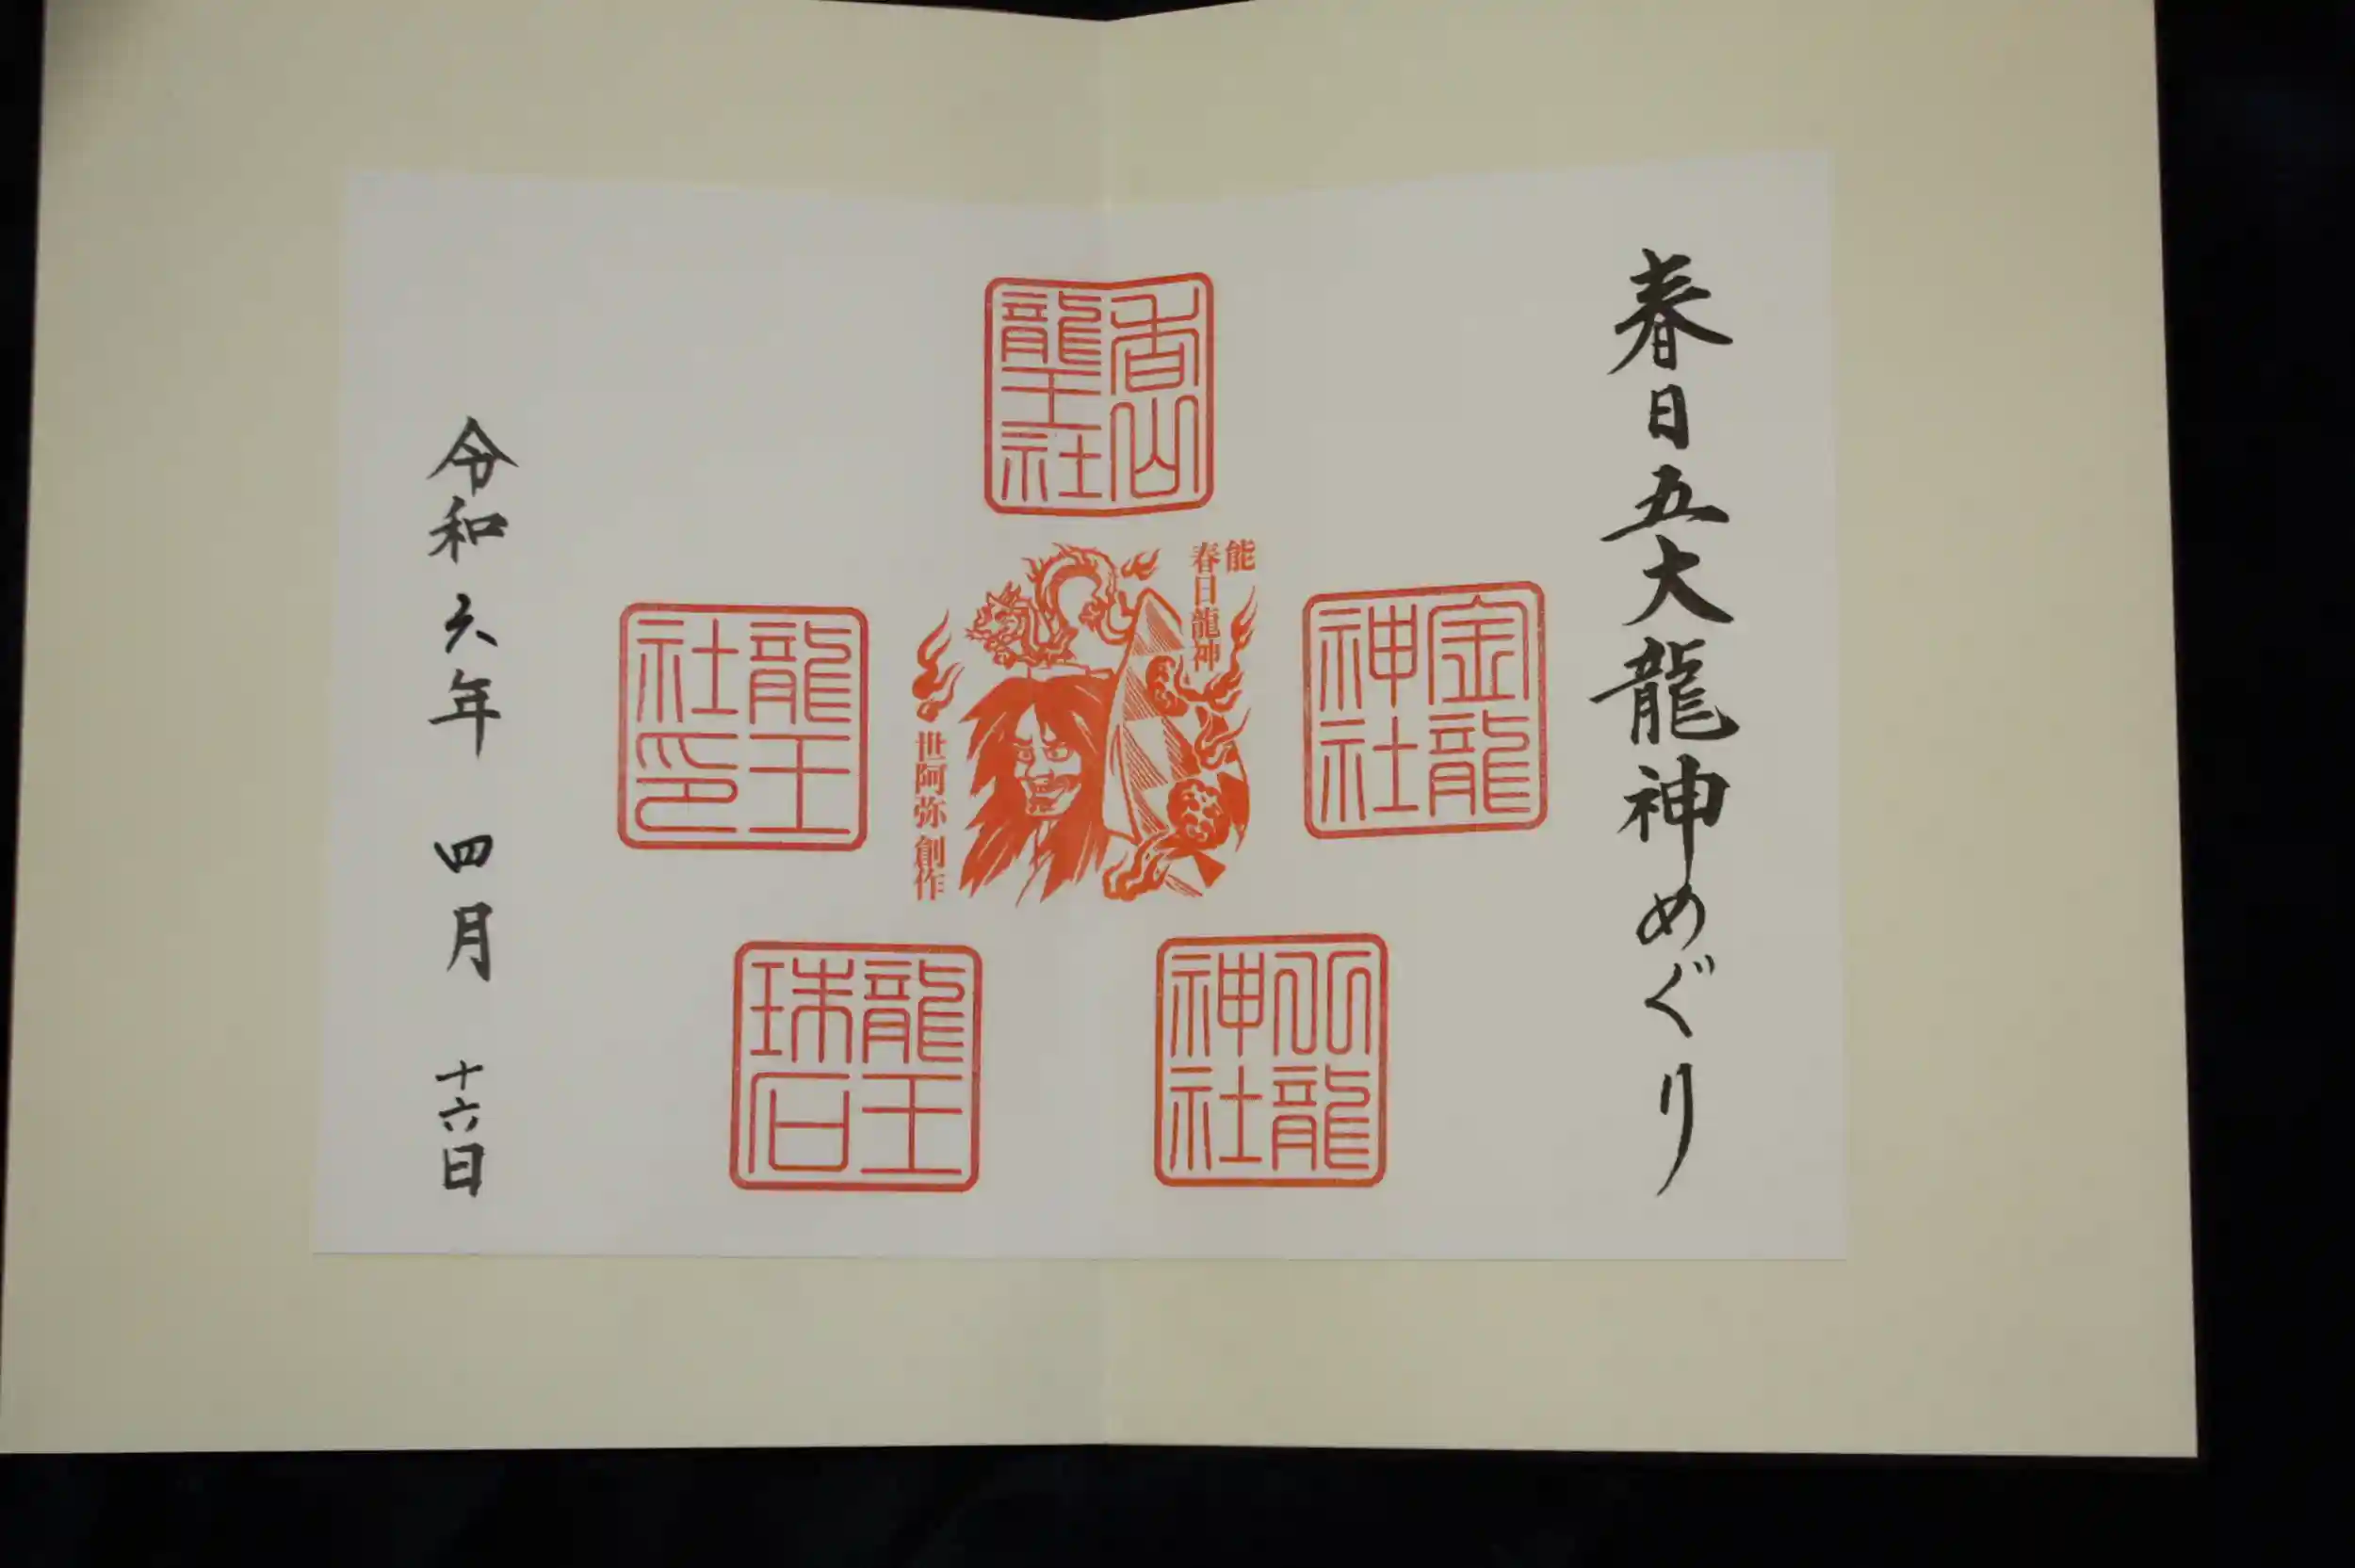 春日五大龍神めぐり
香山
龍王社
金龍
神社
能
春日龍神
世阿弥 創作
龍王
社印
龍神社
龍王
珠石
令和六年 四月 十六日